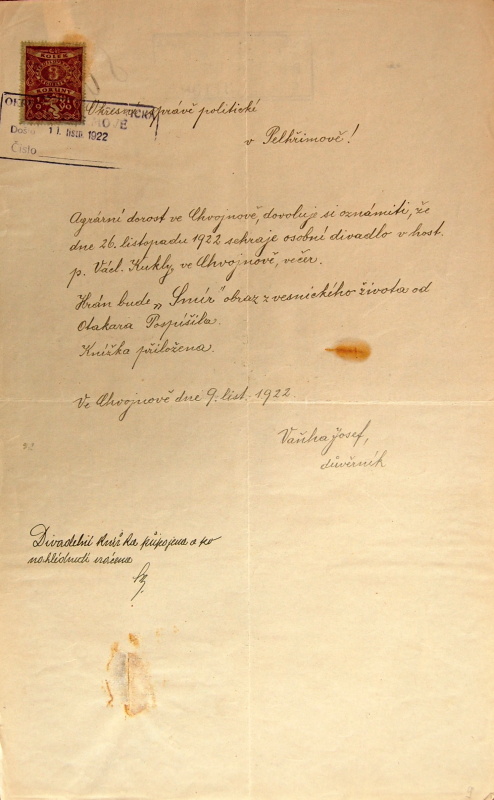 KOLEK
3
KORUNY
Došlo 11. LISTO. 1922
Číslo
Okresní správě politické
v Pelhřimově!
Agrární dorost ve Chvojnově, dovoluje si oznámiti, že
dne 26. listopadu 1922 sehraje osobní divadlo v host.
p. Václ. Kukly, ve Chvojnově, večer.
Hrán bude „Smír" obraz z vesnického života od
Otakara Pospíšila.
Knížka přiložena.
Ve Chvojnově dne 9. list. 1922.
Vaňha Josef,
důvěrník
Divadelní knížka připojena a po
nahlédnutí vrácena